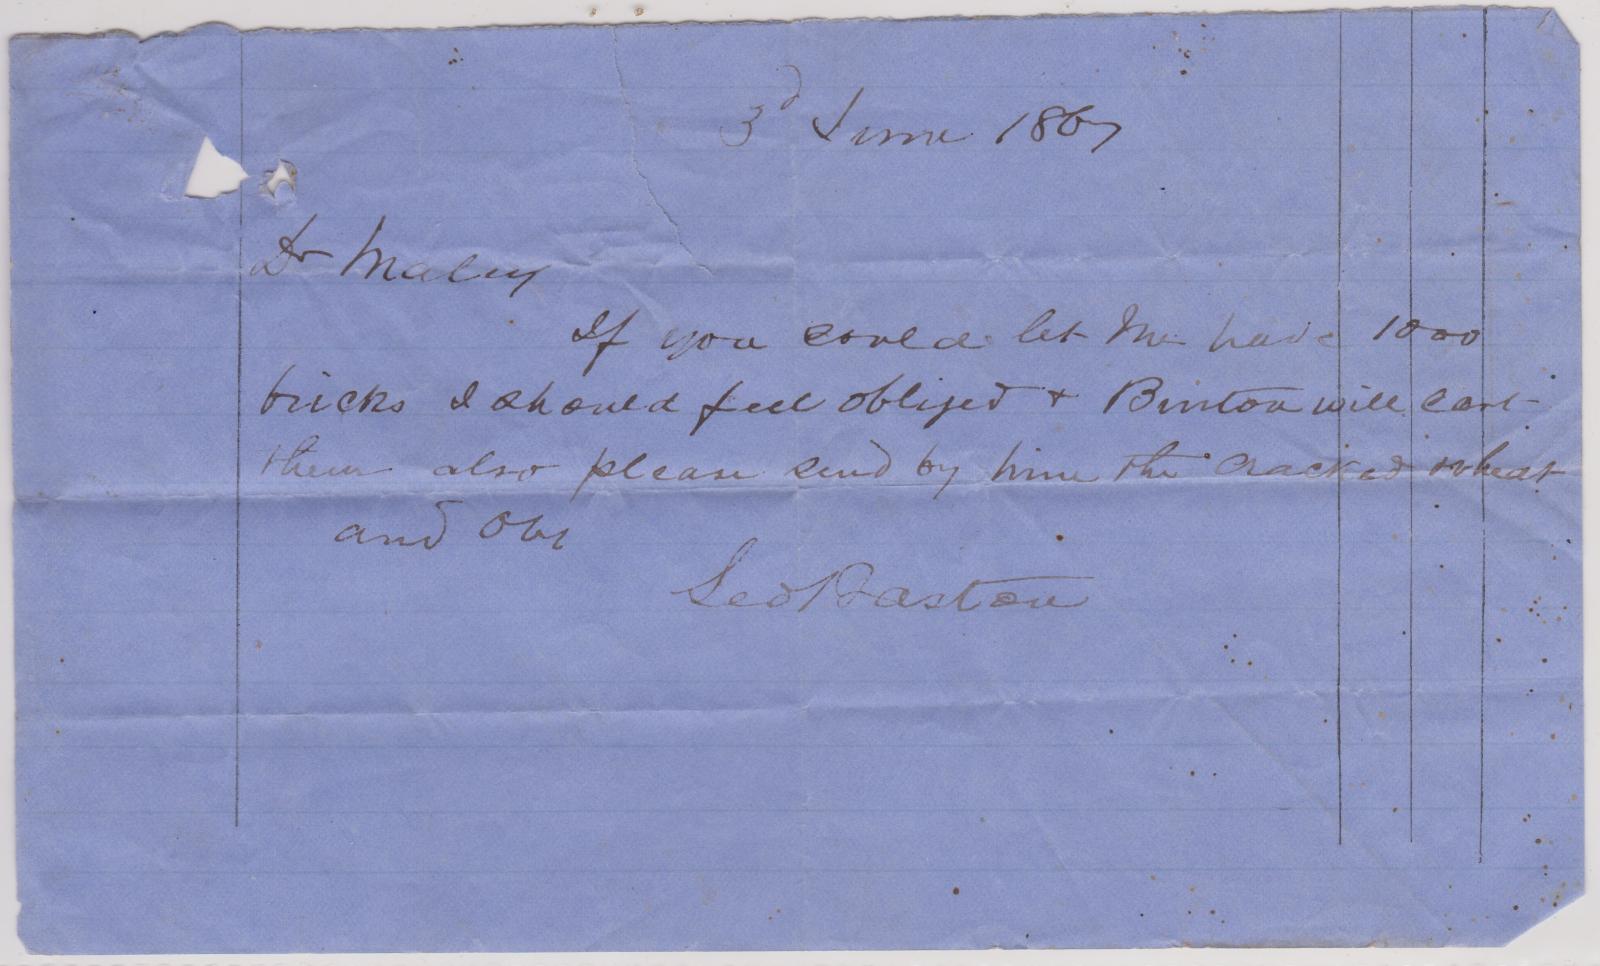 3d June 1867
Dr Maley
If you could let me have 1000
bricks I should feel obliged + Burton will cart
them also please send by him the cracked wheat
and Obl
Geo Baston